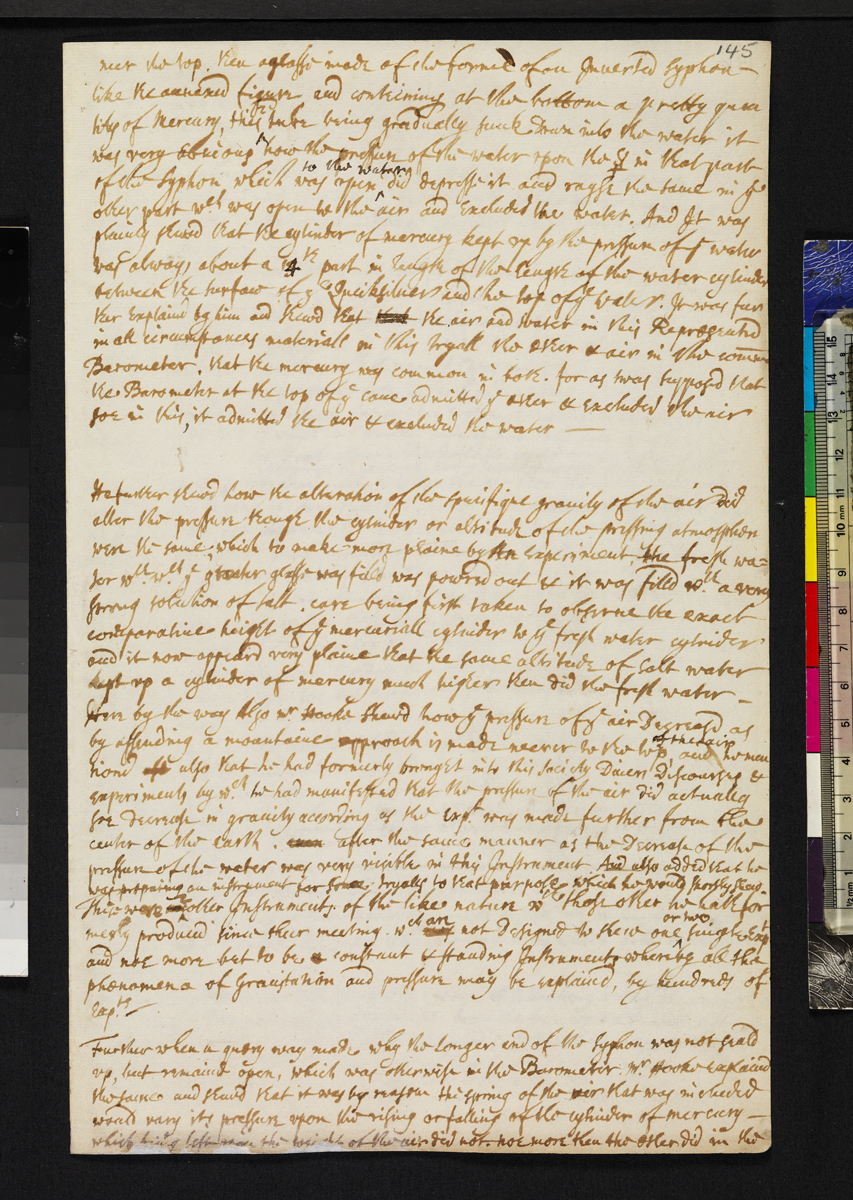 145
neer the top. then a glasse made of the forme of an Inverted syphon
like the annexed figure and conteining at the bottom a pretty quan
tity of Mercury, this tube being gradually sunk Down into the water it
was very obvious how the pressure of the water vpon the ☿ in that part
to the water
of the syphon which was open did depresse it and rayse the same in ye
other part wch was open to the air and Excluded the water. And It was
plainly shewd that the cylinder of mercury kept vp by the pressure of ye water
was always about a 14th part in length of the length of the water cylinder
between the surface of ye Quicksilver and the top of ye water. It was fur
ther Explaind by him and shewd that the air and water in this Represented
in all circumstances materiall in this tryall the ether & air in the common
Barometer. that the mercury was common in both. for as twas supposed that
the Barometer at the top of ye cane admitted ye ether & excluded the air
soe in this, it admitted the air & excluded the water
He further shewd how the alteration of the specifique gravity of the air did
alter the pressure though the cylinder or altitude of the pressing atmosphere
were the same, which to make more plaine by an Experiment, the fresh wa=
ter wth wch ye greater glasse was filld was powred out & it was filld wth a very
strong solution of salt. care being first taken to observe the exact
comparative height of ye mercuriall cylinder to ye fresh water cylinder
and it now appeard very plaine that the same altitude of salt water
kept vp a cylinder of mercury much higher then did the fresh water
Here by the way Also mr Hooke shewd how ye pressure of ye air Decreased as
of the air
by assending a mountaine approach is made neerer to the top and he men
tiond also that he had formerly brought into this society Divers Discourses &
experiments by wch he had manifested that the pressure of the air did actually
soe Decrease in gravity according as the Expt was made further from the
center of the earth. after the same manner as the Decrease of the
pressure of the water was very visible in this Instrument And also added that he
was prepairing an instrument for some tryalls to that purpose which he would shortly shew.
These were other Instruments of the like nature wth those other he hath for
or two
merly produced since their meeting. wch are not Designed to shew one single Expt
and noe more but to be constant & standing Instruments whereby all the
phænomena of Gravitation and pressure may be explained, by hundreds of
Expts
Further when a query was made why the longer end of the syphon was not seald
vp, but remaind open, which was otherwise in the Barometer. mr Hooke explaind
the same and shewd that it was by reason the spring of the air that was included
would vary its pressure vpon the rising or falling of the cylinder of mercury
which being left open the weight of the air did not noe more then the ether did in the